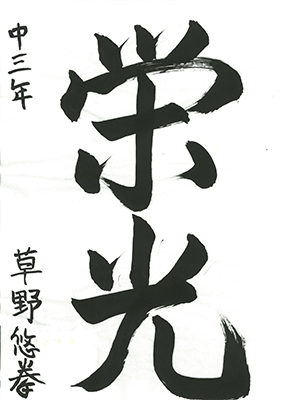 栄光
中三年
草野悠拳